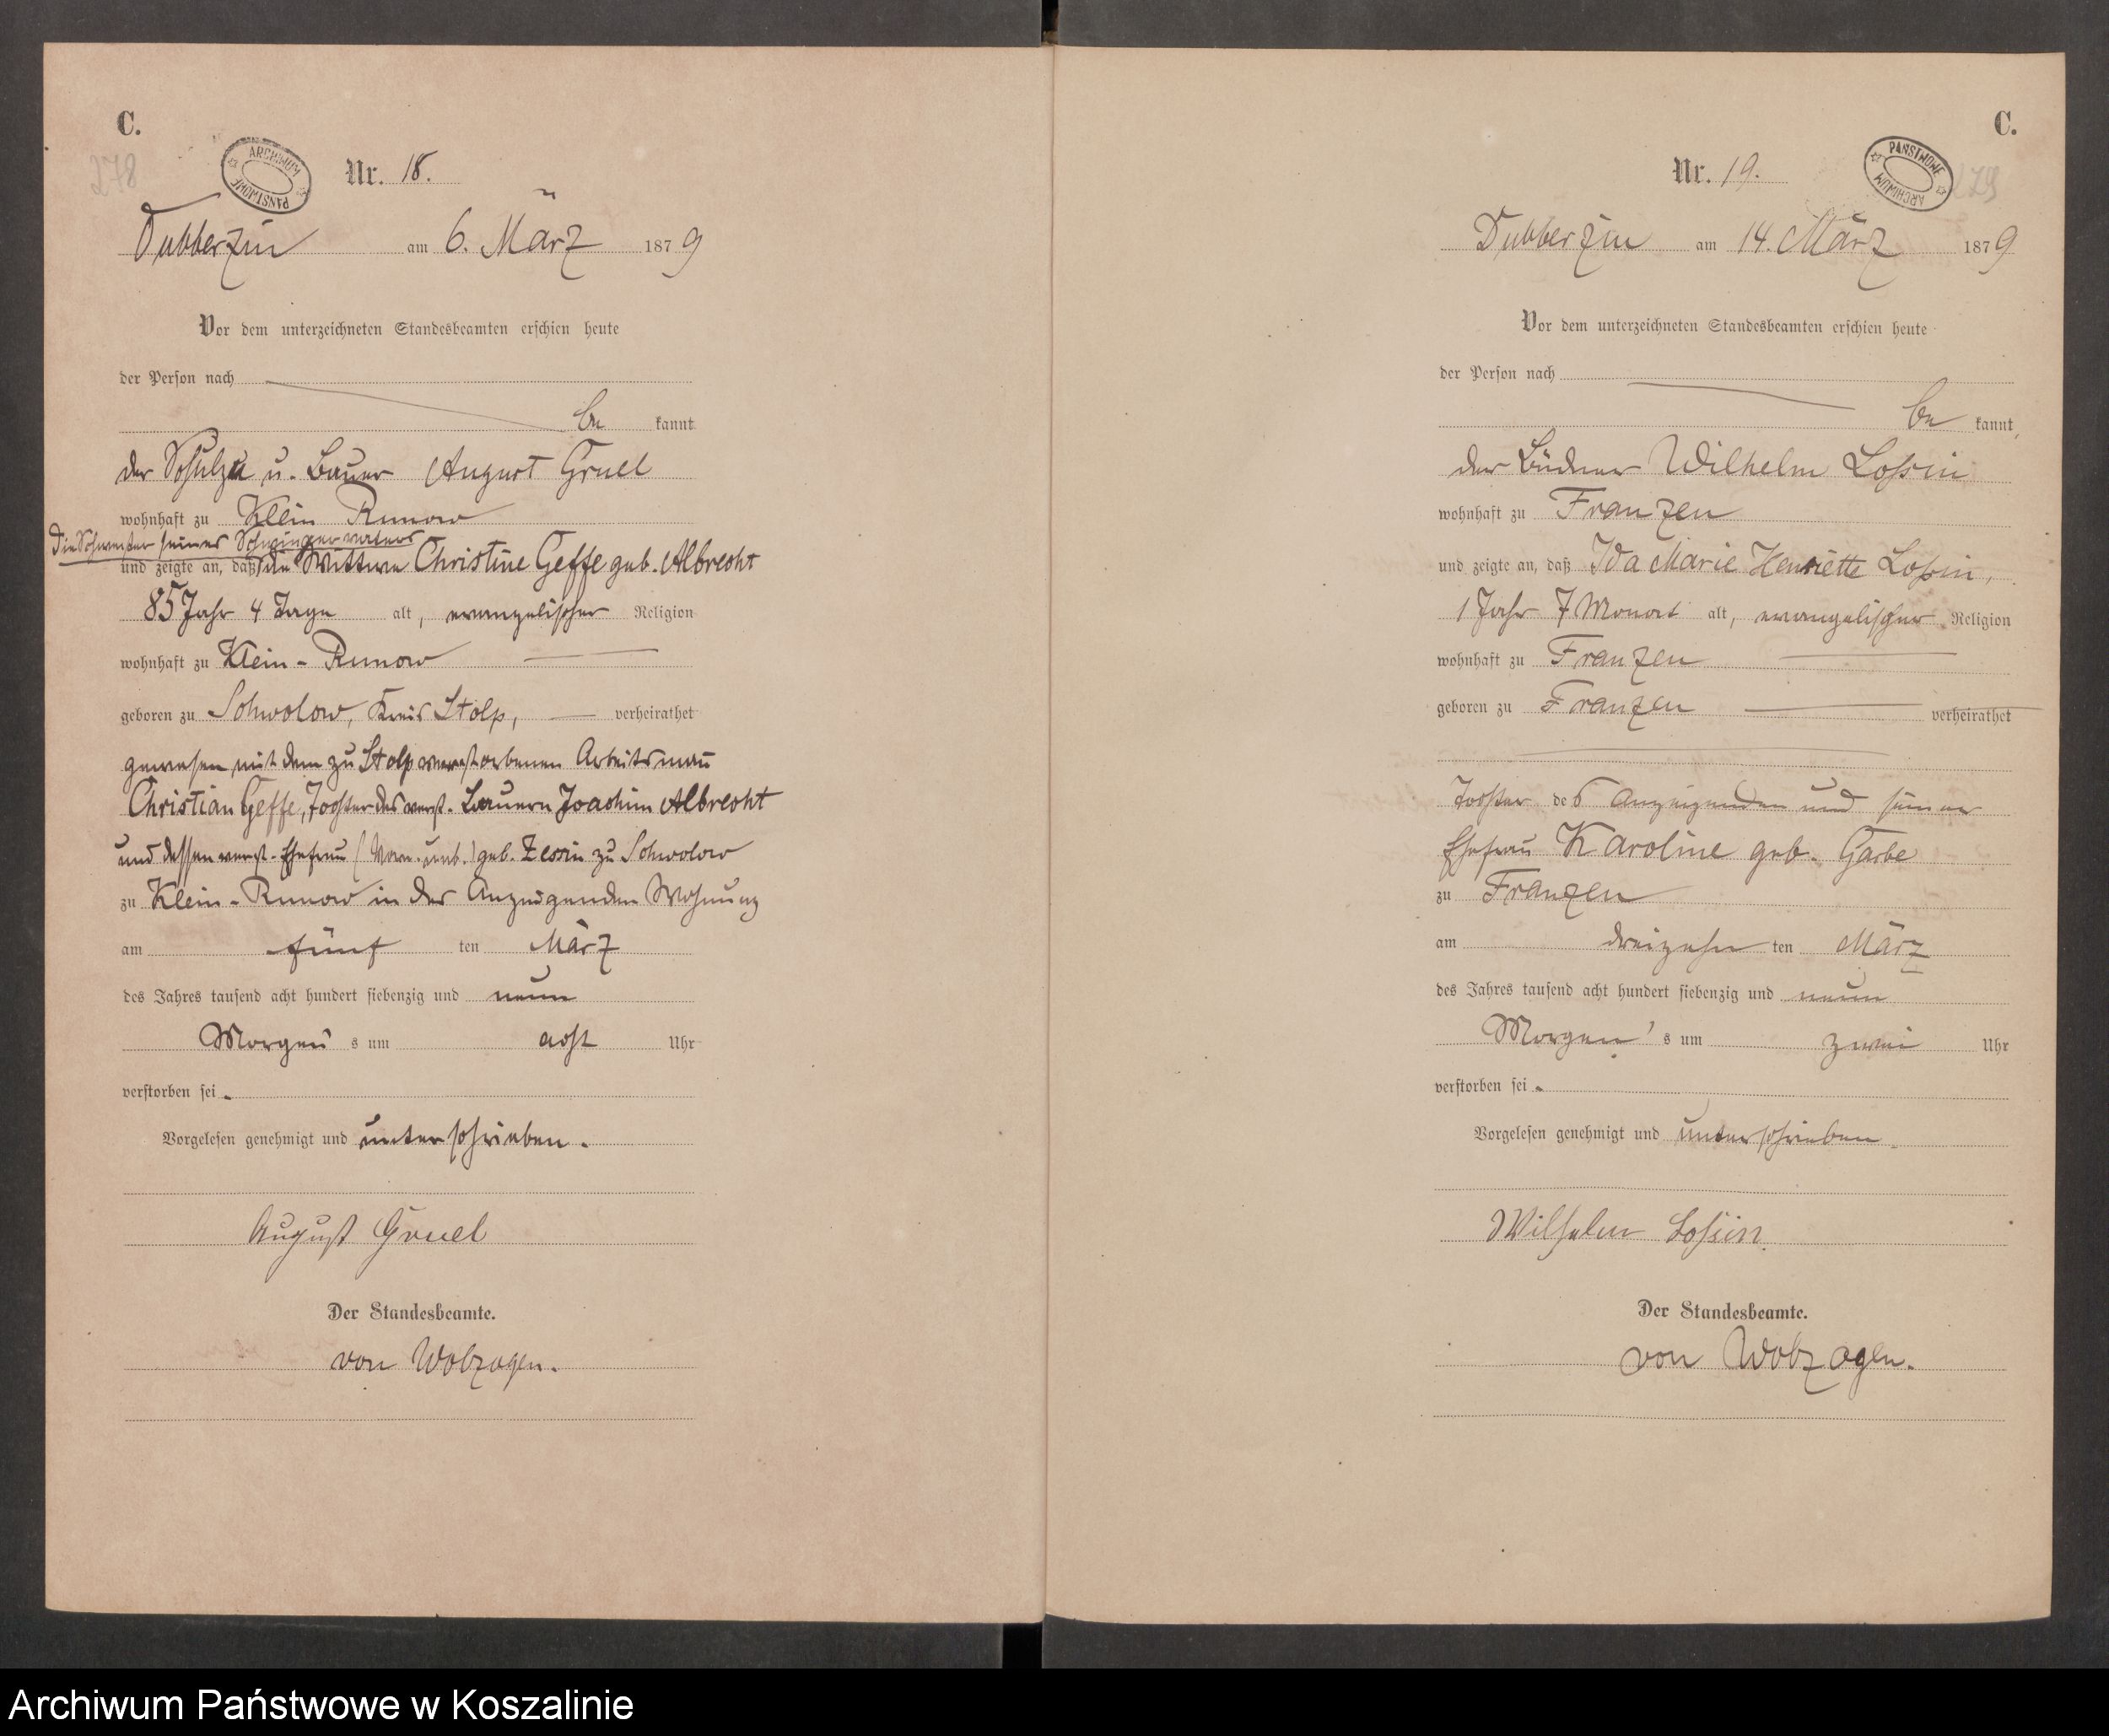 C.
278
ARCHIWUM PAŃSTWOWE
Nr. 18.
Dubberzin am 6. März 1879
Vor dem unterzeichneten Standesbeamten erschien heute
der Person nach
be kannt
der Schulze u. Bauer August Gruel
wohnhaft zu Klein Runow
die Schwester seines Schwiegervaters
und zeigte an, daß die Wittwe Christine Geffe geb. Albrecht
85 Jahr 4 Tage alt, evangelischer Religion
wohnhaft zu Klein-Runow
geboren zu Schwolow, Kreis Stolp, verheirathet
gewesen mit dem zu Stolp verstorbenen Arbeitsmann
Christian Geffe, Tochter des verst. Bauern Joachim Albrecht
und dessen verst. Ehefrau (Vorn. unb.) geb. Zessin zu Schwolow
zu Klein-Runow in der Anzeigenden Wohnung
am fünf ten März
des Jahres tausend acht hundert siebenzig und neun
Morgen s um acht Uhr
verstorben sei.
Vorgelesen genehmigt und unterschrieben.
August Gruel
Der Standesbeamte.
von Wolzogen.
C.
279
PAŃSTWOWE ARCHIWUM
Nr. 19.
Dubberzin am 14. März 1879
Vor dem unterzeichneten Standesbeamten erschien heute
der Person nach
be kannt,
der Büdner Wilhelm Loßin
wohnhaft zu Franzen
und zeigte an, daß Ida Marie Henriette Loßin,
1 Jahr 7 Monat alt, evangelischer Religion
wohnhaft zu Franzen
geboren zu Franzen verheirathet
Tochter des Anzeigenden und seiner
Ehefrau Karoline geb. Garbe
zu Franzen
am dreizehn ten März
des Jahres tausend acht hundert siebenzig und neun
Morgen's um zwei Uhr
verstorben sei.
Vorgelesen genehmigt und unterschrieben.
Wilhelm Loßin
Der Standesbeamte.
von Wolzogen.
Archiwum Państwowe w Koszalinie